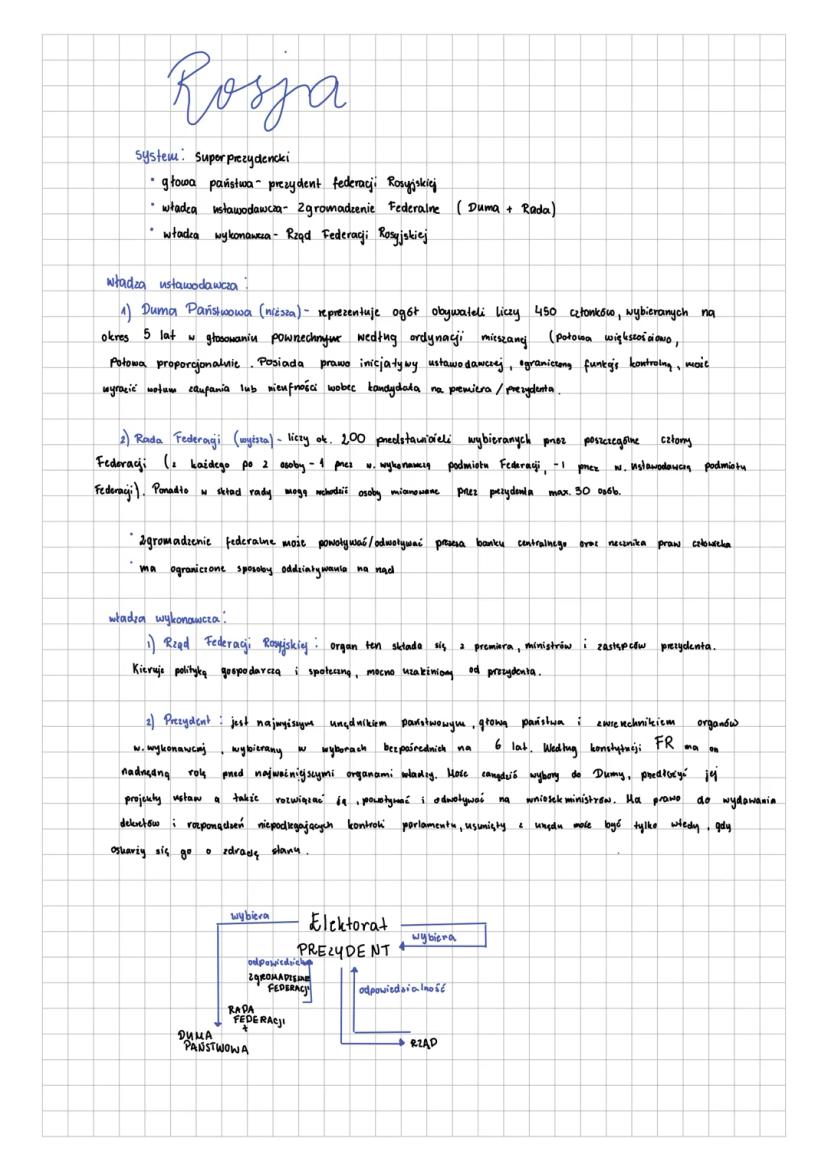 Rosja
system: Superprezydencki
• głowa państwa- prezydent federacji Rosyjskiej
• władza ustawodawcza- Zgromadzenie Federalne ( Duma + Rada)
• władza wykonawcza- Rząd Federacji Rosyjskiej
władza ustawodawcza:
1) Duma Państwowa (niższa)- reprezentuje ogół obywateli liczy 450 członków, wybieranych na
okres 5 lat w głosowaniu powszechnym według ordynacji mieszanej (połowa większościowo,
Połowa proporcjonalnie. Posiada prawo inicjatywy ustawodawczej, ograniczoną funkcję kontrolną, może
wyrazić wotum zaufania lub nieufności wobec kandydata na premiera/prezydenta.
2) Rada Federacji (wyższa)- liczy ok. 200 przedstawicieli wybieranych przez poszczególne człony
Federacji (z każdego po 2 osoby -1 przez w. wykonawczą podmiotu Federacji, -1 przez w. ustawodawczą podmiotu
Federacji). Ponadto w skład rady mogą wchodzić osoby mianowane przez prezydenta max. 30 osób.
• Zgromadzenie federalne może powoływać/odwoływać prezesa banku centralnego oraz rzecznika praw człowieka
• ma ograniczone sposoby oddziaływania na rząd
władza wykonawcza:
1) Rząd Federacji Rosyjskiej: organ ten składa się z premiera, ministrów i zastępców prezydenta.
Kieruje polityką gospodarczą i społeczną, mocno uzależniony od prezydenta.
2) Prezydent: jest najwyższym urzędnikiem państwowym, głową państwa i zwierzchnikiem organów
w. wykonawczej, wybierany w wyborach bezpośrednich na 6 lat. Według konstytucji FR ma on
nadrzędną rolę przed najważniejszymi organami władzy. Może zarządzić wybory do Dumy, przedłożyć jej
projekty ustaw a także rozwiązać ją, powoływać i odwoływać na wniosek ministrów. Ma prawo do wydawania
dekretów i rozporządzeń niepodlegających kontroli parlamentu, usunięty z urzędu może być tylko wtedy, gdy
oskarży się go o zdradę stanu.
wybiera
Elektorat
wybiera
PREZYDENT
ZGROMADZENIE
FEDERACJI
odpowiedzialność
RADA
FEDERACJI
+
DUMA
PAŃSTWOWA
RZĄD